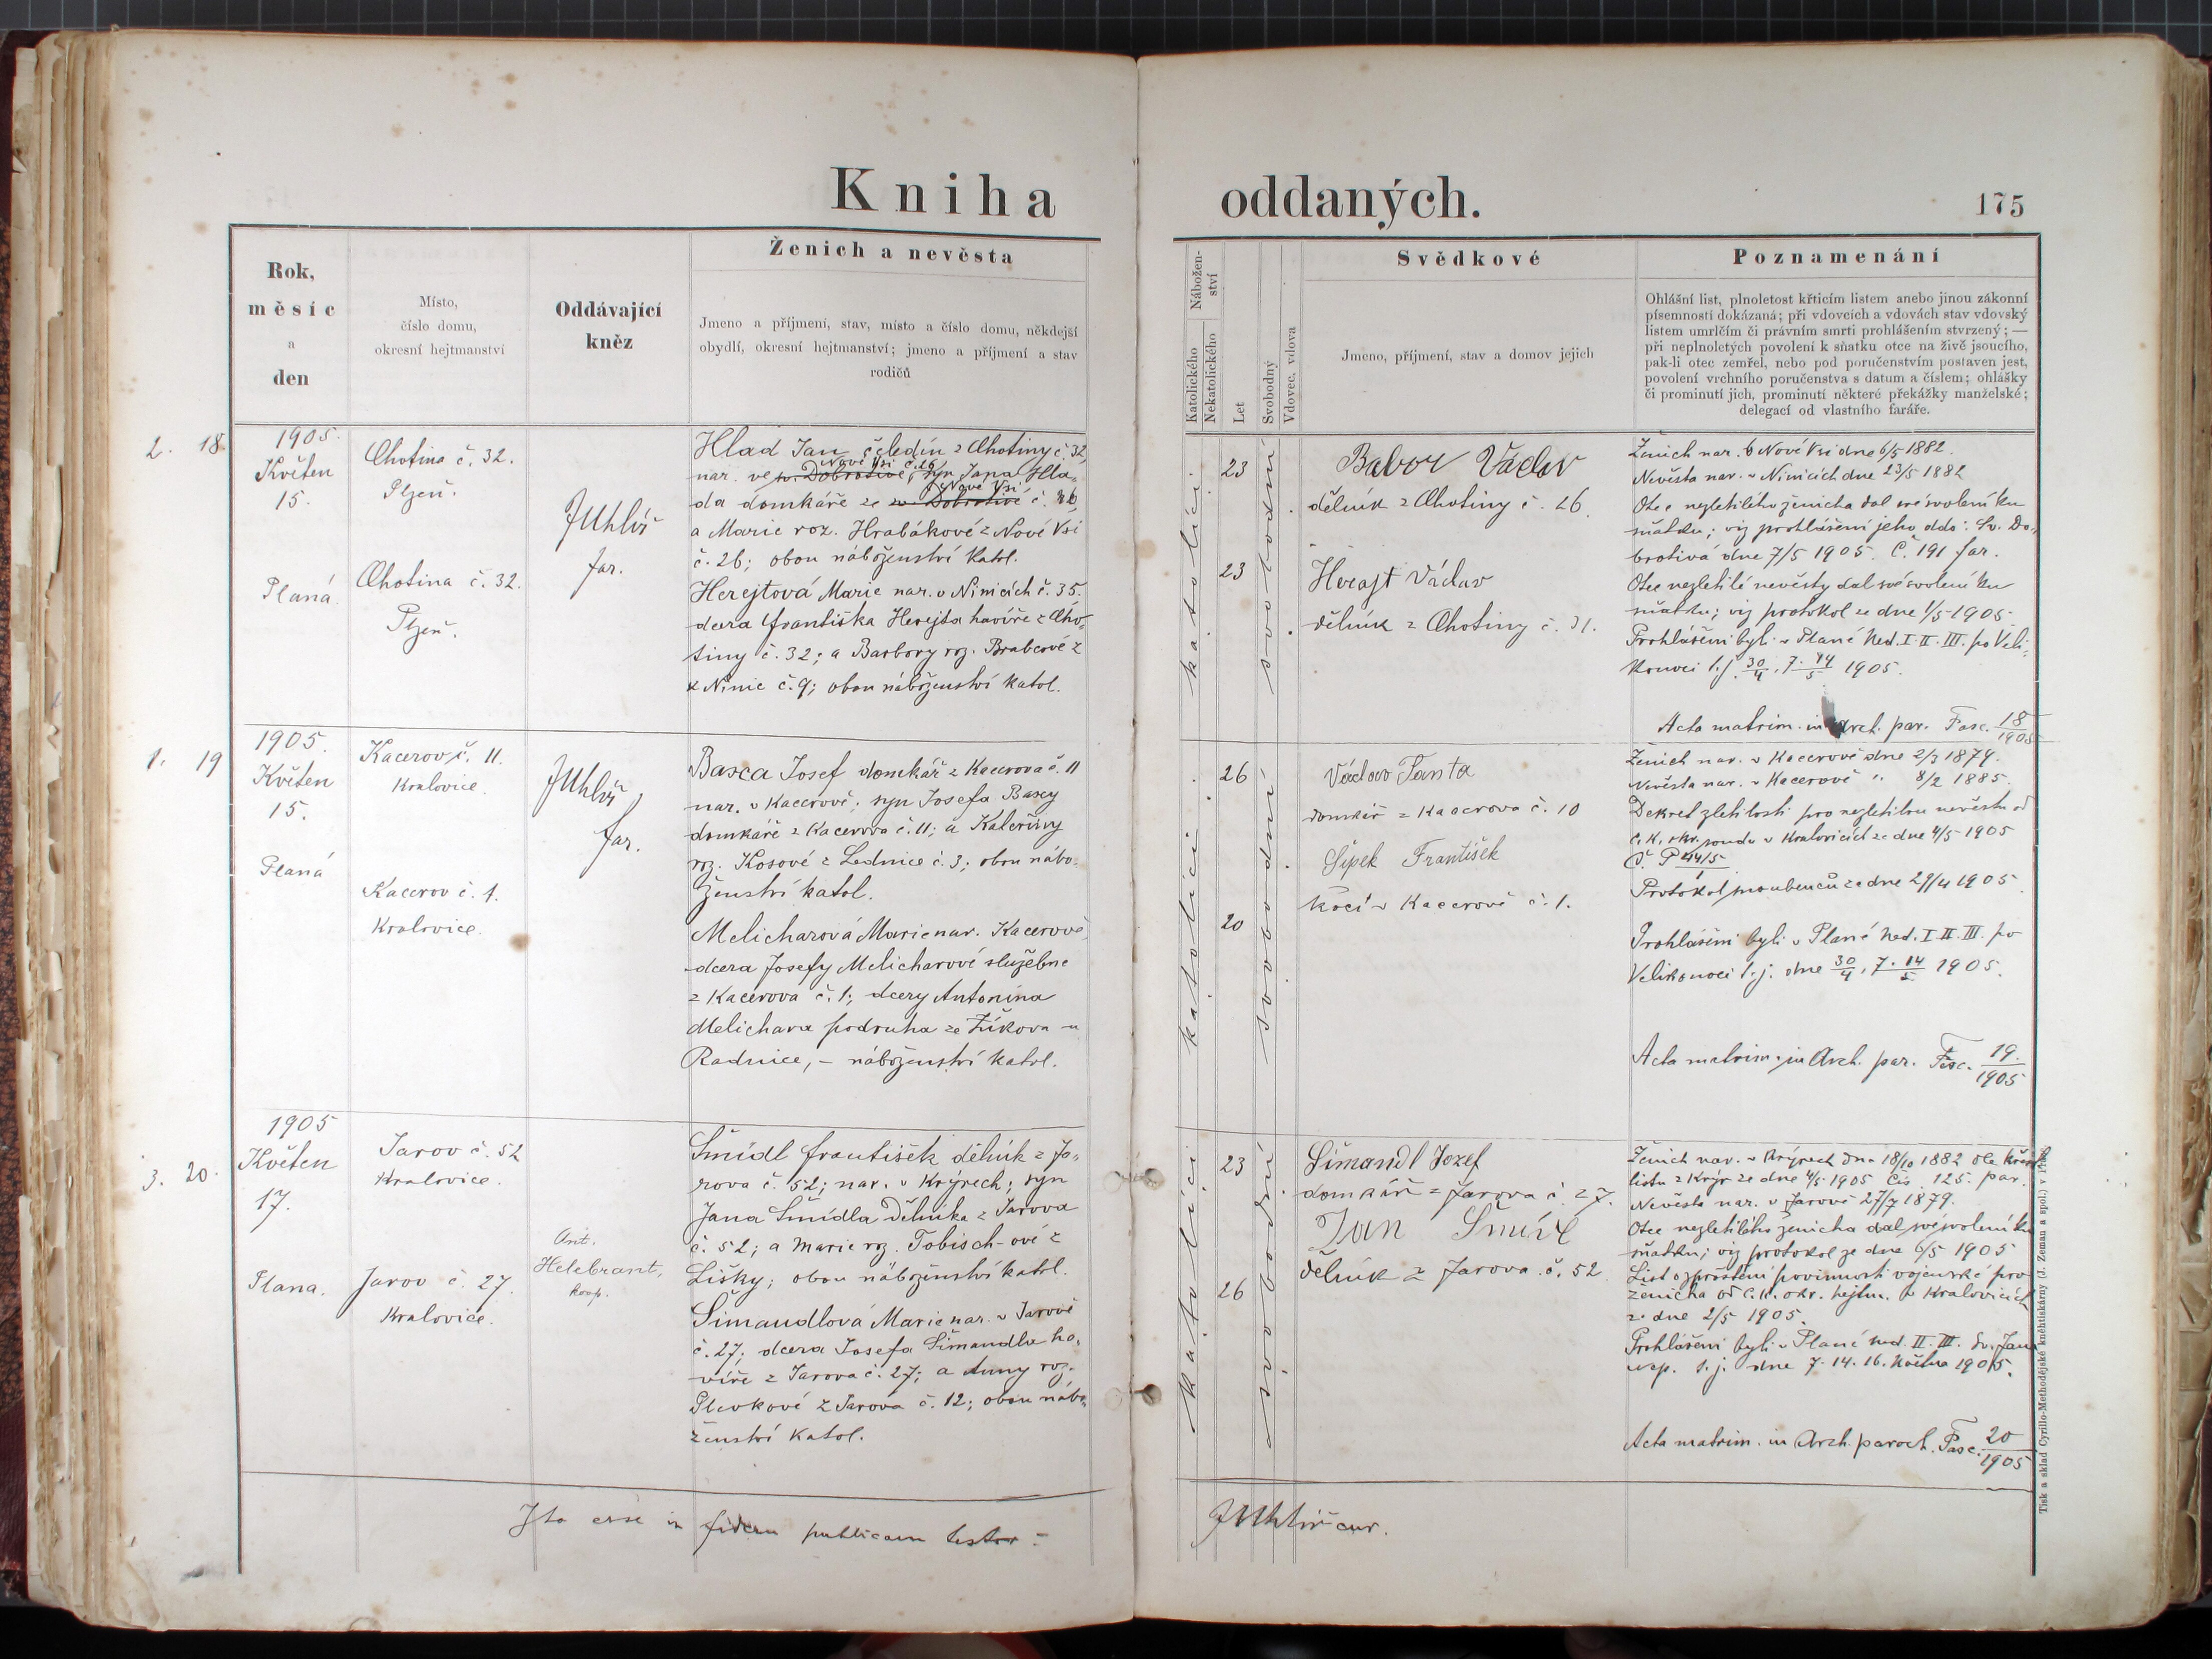 Kniha oddaných.
175
Rok,
měsíc
a
den
Místo,
číslo domu,
okresní hejtmanství
Oddávající
kněz
Ženich a nevěsta
Jmeno a příjmení, stav, místo a číslo domu, někdejší
obydlí, okresní hejtmanství; jmeno a příjmení a stav
rodičů
Nábožen-
ství
Katolického
Nekatolického
Let
Svobodný
Vdovec, vdova
Svědkové
Jmeno, příjmení, stav a domov jejich
Poznamenání
Ohlášní list, plnoletost křticím listem anebo jinou zákonní
písemností dokázaná; při vdovcích a vdovách stav vdovský
listem umrlčím či právním smrti prohlášením stvrzený; —
při neplnoletých povolení k sňatku otce na živě jsoucího,
pak-li otec zemřel, nebo pod poručenstvím postaven jest,
povolení vrchního poručenstva s datum a číslem; ohlášky
či prominutí jich, prominutí některé překážky manželské;
delegací od vlastního faráře.
2. 18.
1905.
Květen
15.
Planá.
Chotina č. 32.
Plzeň.
Chotina č. 32.
Plzeň.
JUhlíř
far.
Hlad Jan, čeledín z Chotiny č. 32,
Nové Vsi č. 26
nar. ve v. Dobrotivé, syn Jana Hla-
Nové Vsi
da domkáře ze sv. Dobrotivé č. 26,
a Marie roz. Hrabákové z Nové Vsi
č. 26; obou náboženství katol.
Herejtová Marie nar. v Nimicích č. 35.
dcera Františka Herejta havíře z Cho-
tiny č. 32; a Barbory roz. Brabcové z
z Nimic č. 9; obou náboženství katol.
katolíci
23
23
svobodní
Babor Václav
dělník z Chotiny č. 26.
Herajt Václav
dělník z Chotiny č. 31.
Ženich nar. v Nové Vsi dne 6/5 1882.
Nevěsta nar. v Nimicích dne 23/5 1882
Otec nezletilého ženicha dal své svolení ku
sňatku; viz prohlášení jeho ddo: Sv. Do-
brotivá dne 7/5 1905. Č. 191 far.
Otec nezletilé nevěsty dal své svolení ku
sňatku; viz protokol ze dne 1/5 1905.
Prohlášeni byli v Plané Ned. I. II. III. po Veli-
konoci t.j. 30/4, 7. 14/5 1905.
Acta matrim. in Arch. par. Fasc. 18/1905
1. 19
1905.
Květen
15.
Planá
Kacerov č. 11.
Kralovice.
Kacerov č. 1.
Kralovice.
JUhlíř,
far.
Basca Josef domkář z Kacerova č. 11
nar. v Kacerově; syn Josefa Bascy
domkáře z Kacerova č. 11; a Kateřiny
roz. Kosové z Lednice č. 3; obou nábo-
ženství katol.
Melicharová Marie nar. Kacerově,
dcera Josefy Melicharové služebné
z Kacerova č. 1; dcery Antonína
Melichara podruha ze Žikova u
Radnice, – náboženství katol.
katolíci
26
20
svobodní
Václav Panta
domkář z Kacerova č. 10
Šípek František
kočí v Kacerově č. 1.
Ženich nar. v Kacerově dne 2/3 1879.
Nevěsta nar. v Kacerově " 8/2 1885.
Dekret zletilosti pro nezletilou nevěstu od
c. k. okr. soudu v Kralovicích ze dne 4/5 1905
Protokol snoubenců ze dne 29/4 1905.
Prohlášeni byli v Plané Ned. I. II. III. po
Velikonoci t.j. dne 30/4, 7. 14/5 1905.
Acta matrim. in Arch. par. Fasc. 19./1905
3. 20.
1905
Květen
17.
Plana.
Jarov č. 52
Kralovice.
Jarov č. 27.
Kralovice.
Ant.
Helebrant,
koop.
Šmídl František dělník z Ja-
rova č. 52; nar. v Krýrech; syn
Jana Šmídla dělníka z Jarova
č. 52; a Marie roz. Tobisch-ové z
Lišky; obou náboženství katol.
Šimandlová Marie nar. v Jarově
č. 27; dcera Josefa Šimandla ha-
víře z Jarova č. 27; a Anny roz.
Plevkové z Jarova č. 12; obou nábo-
ženství katol.
katolíci
23
26
svobodní
Šimandl Jozef
domkář z Jarova č. 27.
Jan Šmídl
dělník z Jarova č. 52
Ženich nar. v Krýrech dne 18/10 1882 dle křest.
listu z Krýr ze dne 4/5 1905 čís. 125. par.
Nevěsta nar. v Jarově 27/7 1879.
Otec nezletilého ženicha dal své svolení ku
sňatku; viz protokol ze dne 6/5 1905
List osproštění povinnosti vojenské pro
ženicha od c. k. okr. hejtm. v Kralovicích
ze dne 2/5 1905.
Prohlášeni byli v Plané Ned. II. III. Sv. Jana
nep. t.j. dne 7. 14. 16. Května 1905.
Acta matrim. in Arch. paroch. Fasc. 20/1905
Ita esse in fidem publicam testor –
JUhlíř cur.
Tisk a sklad Cyrillo-Methodějské kněhtiskárny (J. Zeman a spol.) v Praze.